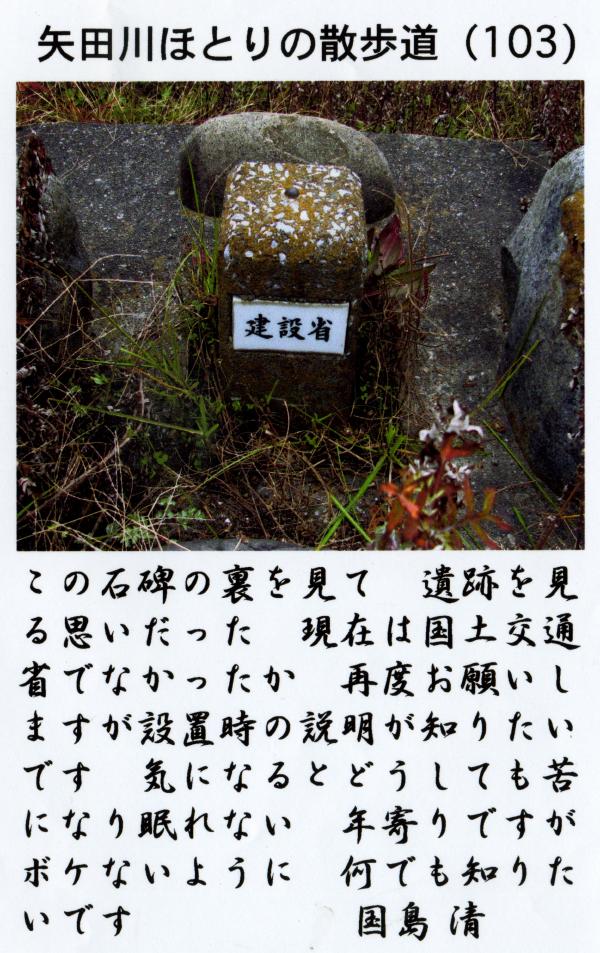 矢田川ほとりの散歩道（103）
建設省
この石碑の裏を見て　遺跡を見
る思いだった　現在は国土交通
省でなかったか　再度お願いし
ますが設置時の説明が知りたい
です　気になるとどうしても苦
になり眠れない　年寄りですが
ボケないように　何でも知りた
いです　国島 清